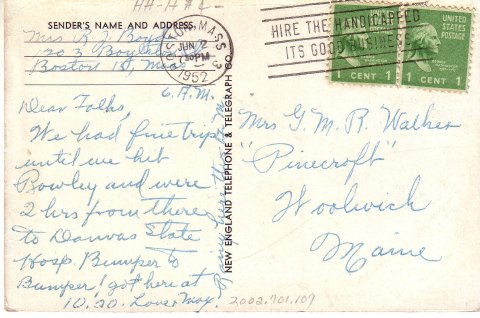 HH-H#4-
SENDER'S NAME AND ADDRESS
Mrs R. J. Boyd
1203 Boylston St
Boston 15, Mass
BOSTON, MASS. 3
JUN 2
7:30 PM
1952
HIRE THE HANDICAPPED
ITS GOOD BUSINESS
UNITED STATES POSTAGE
1 CENT 1
1 CENT 1
6 A.M.
Dear Folks,
We had fine trip
until we hit
Rowley and were
2 hrs from there
to Danvas State
Hosp. Bumper to
Bumper! got here at
10.20. Love, May.
Rainy here
NEW ENGLAND TELEPHONE & TELEGRAPH CO.
Mrs G. M. R. Walker
"Pinecroft"
Woolwich
Maine
2002.701.107